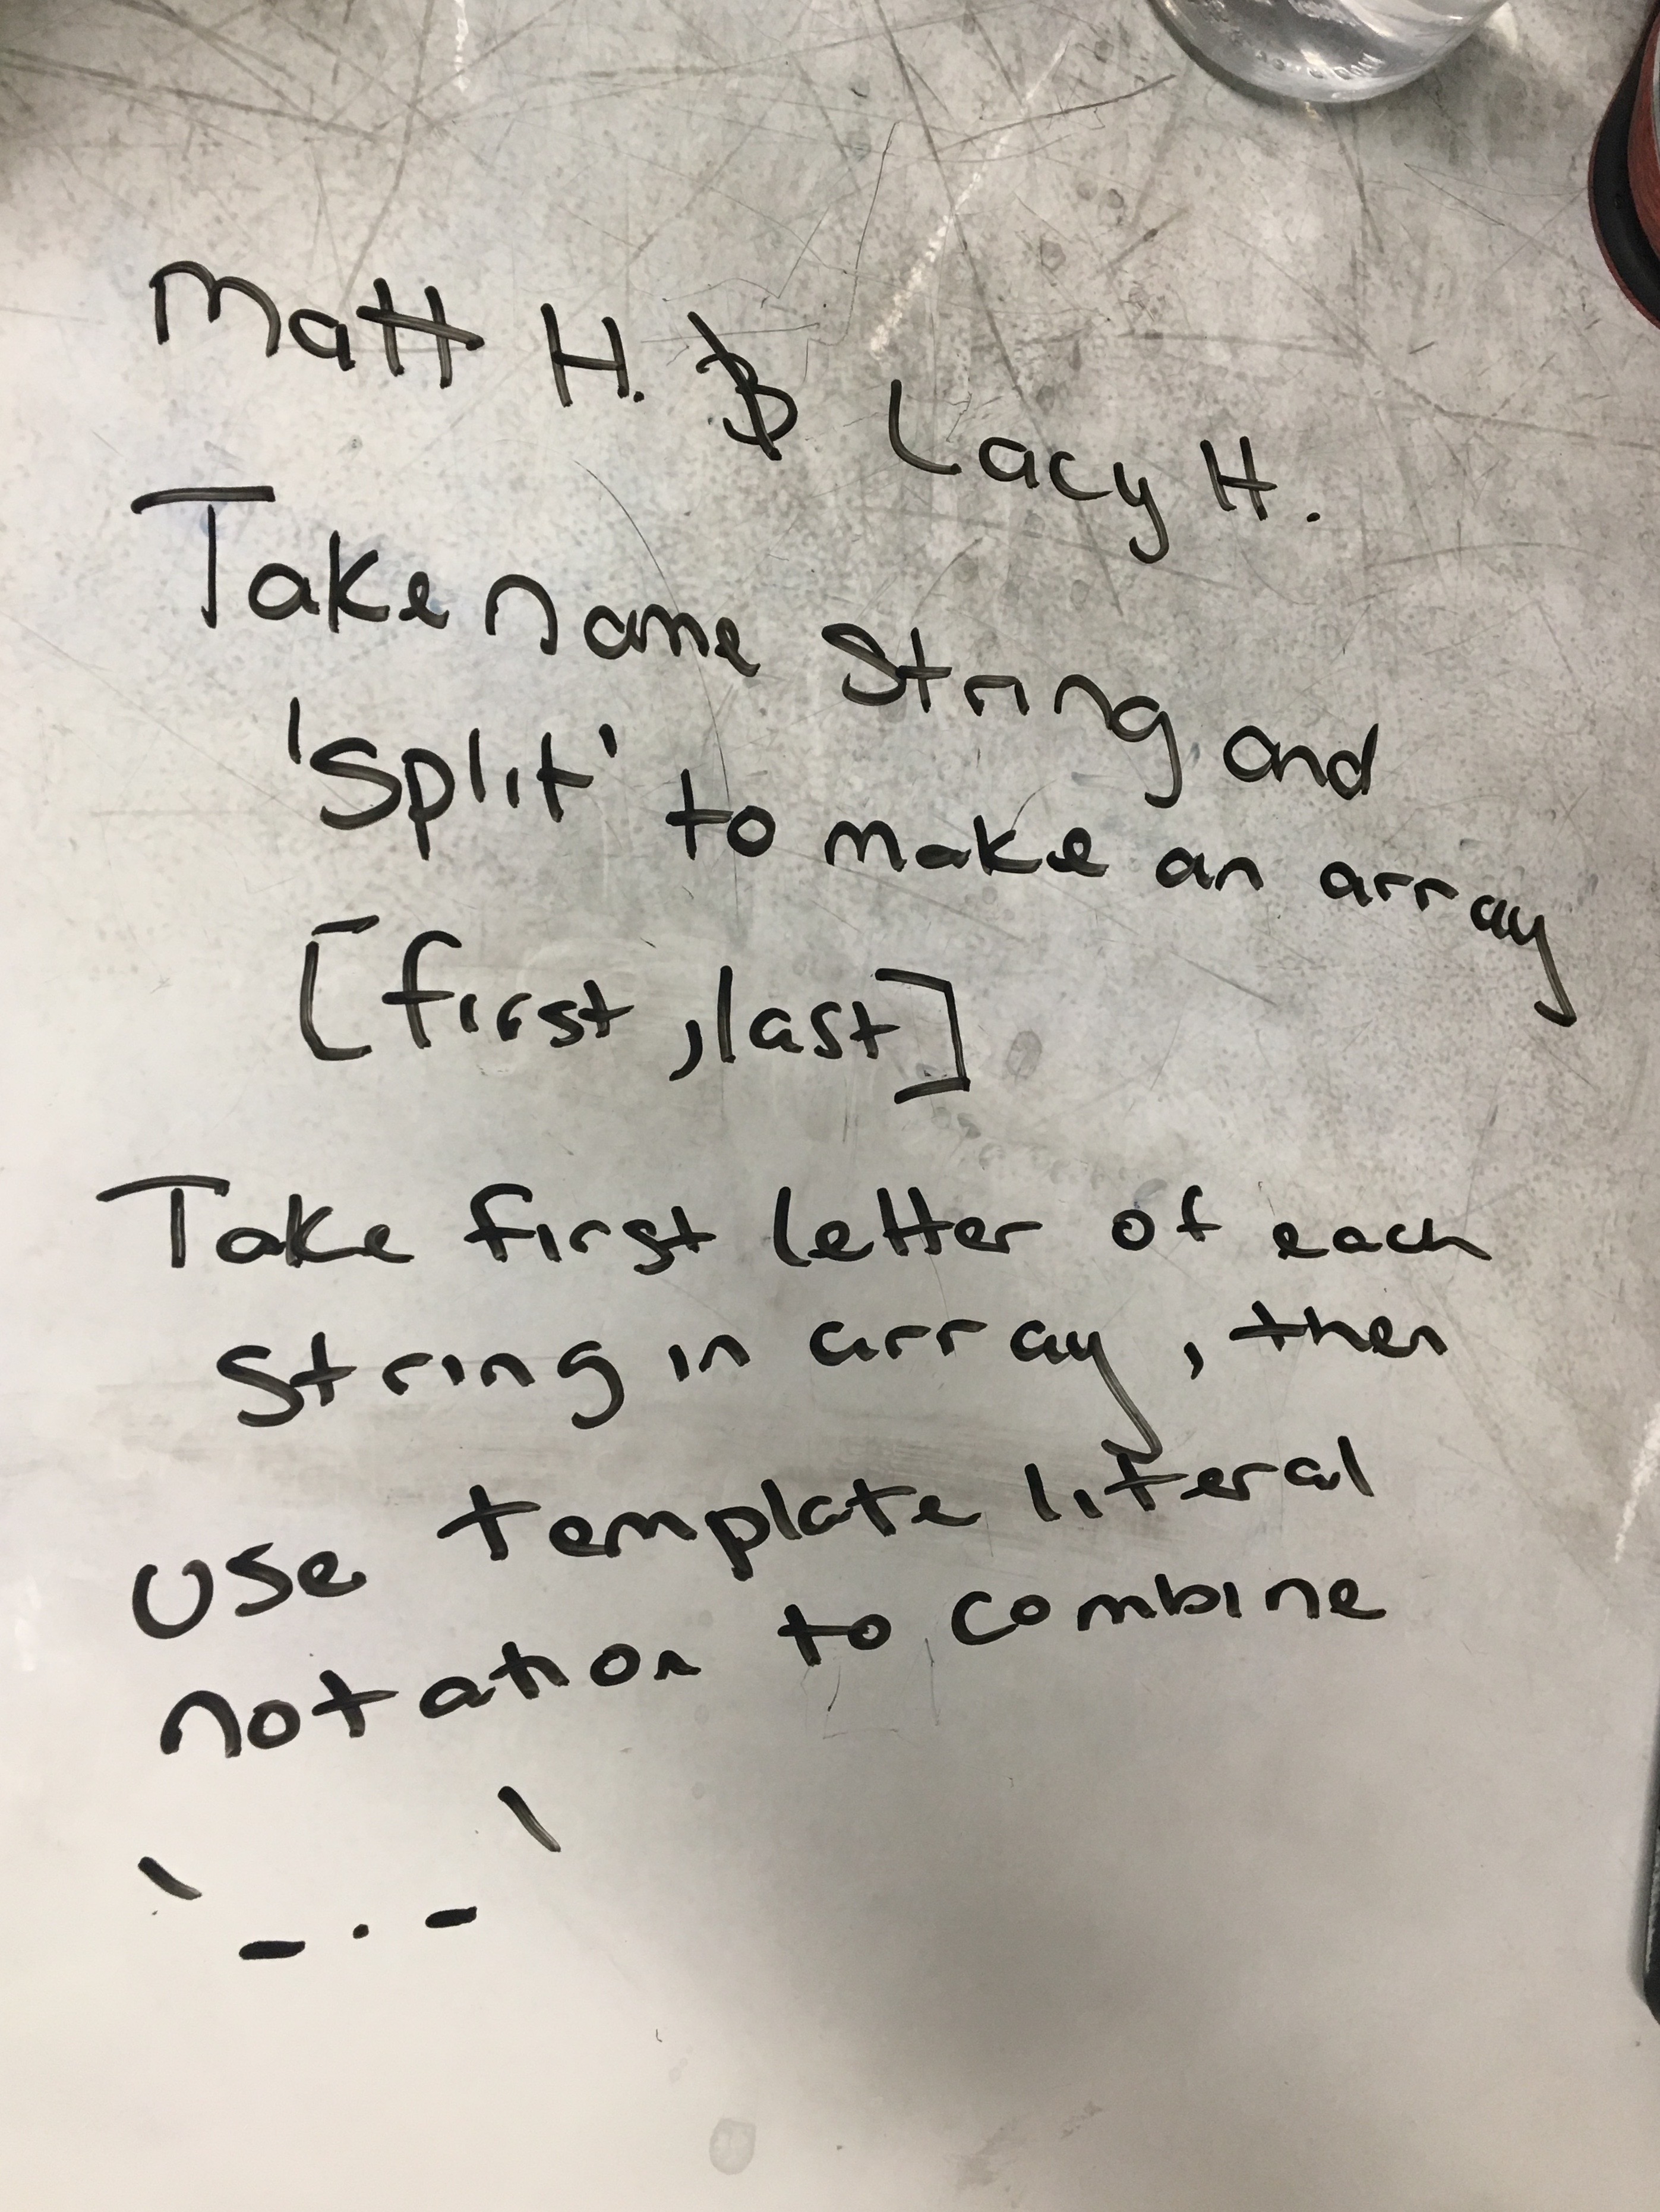 Matt H. & Lacy H.
Take name string and
'split' to make an array
[first, last]
Take first letter of each
string in array, then
use template literal
notation to combine
`_._`